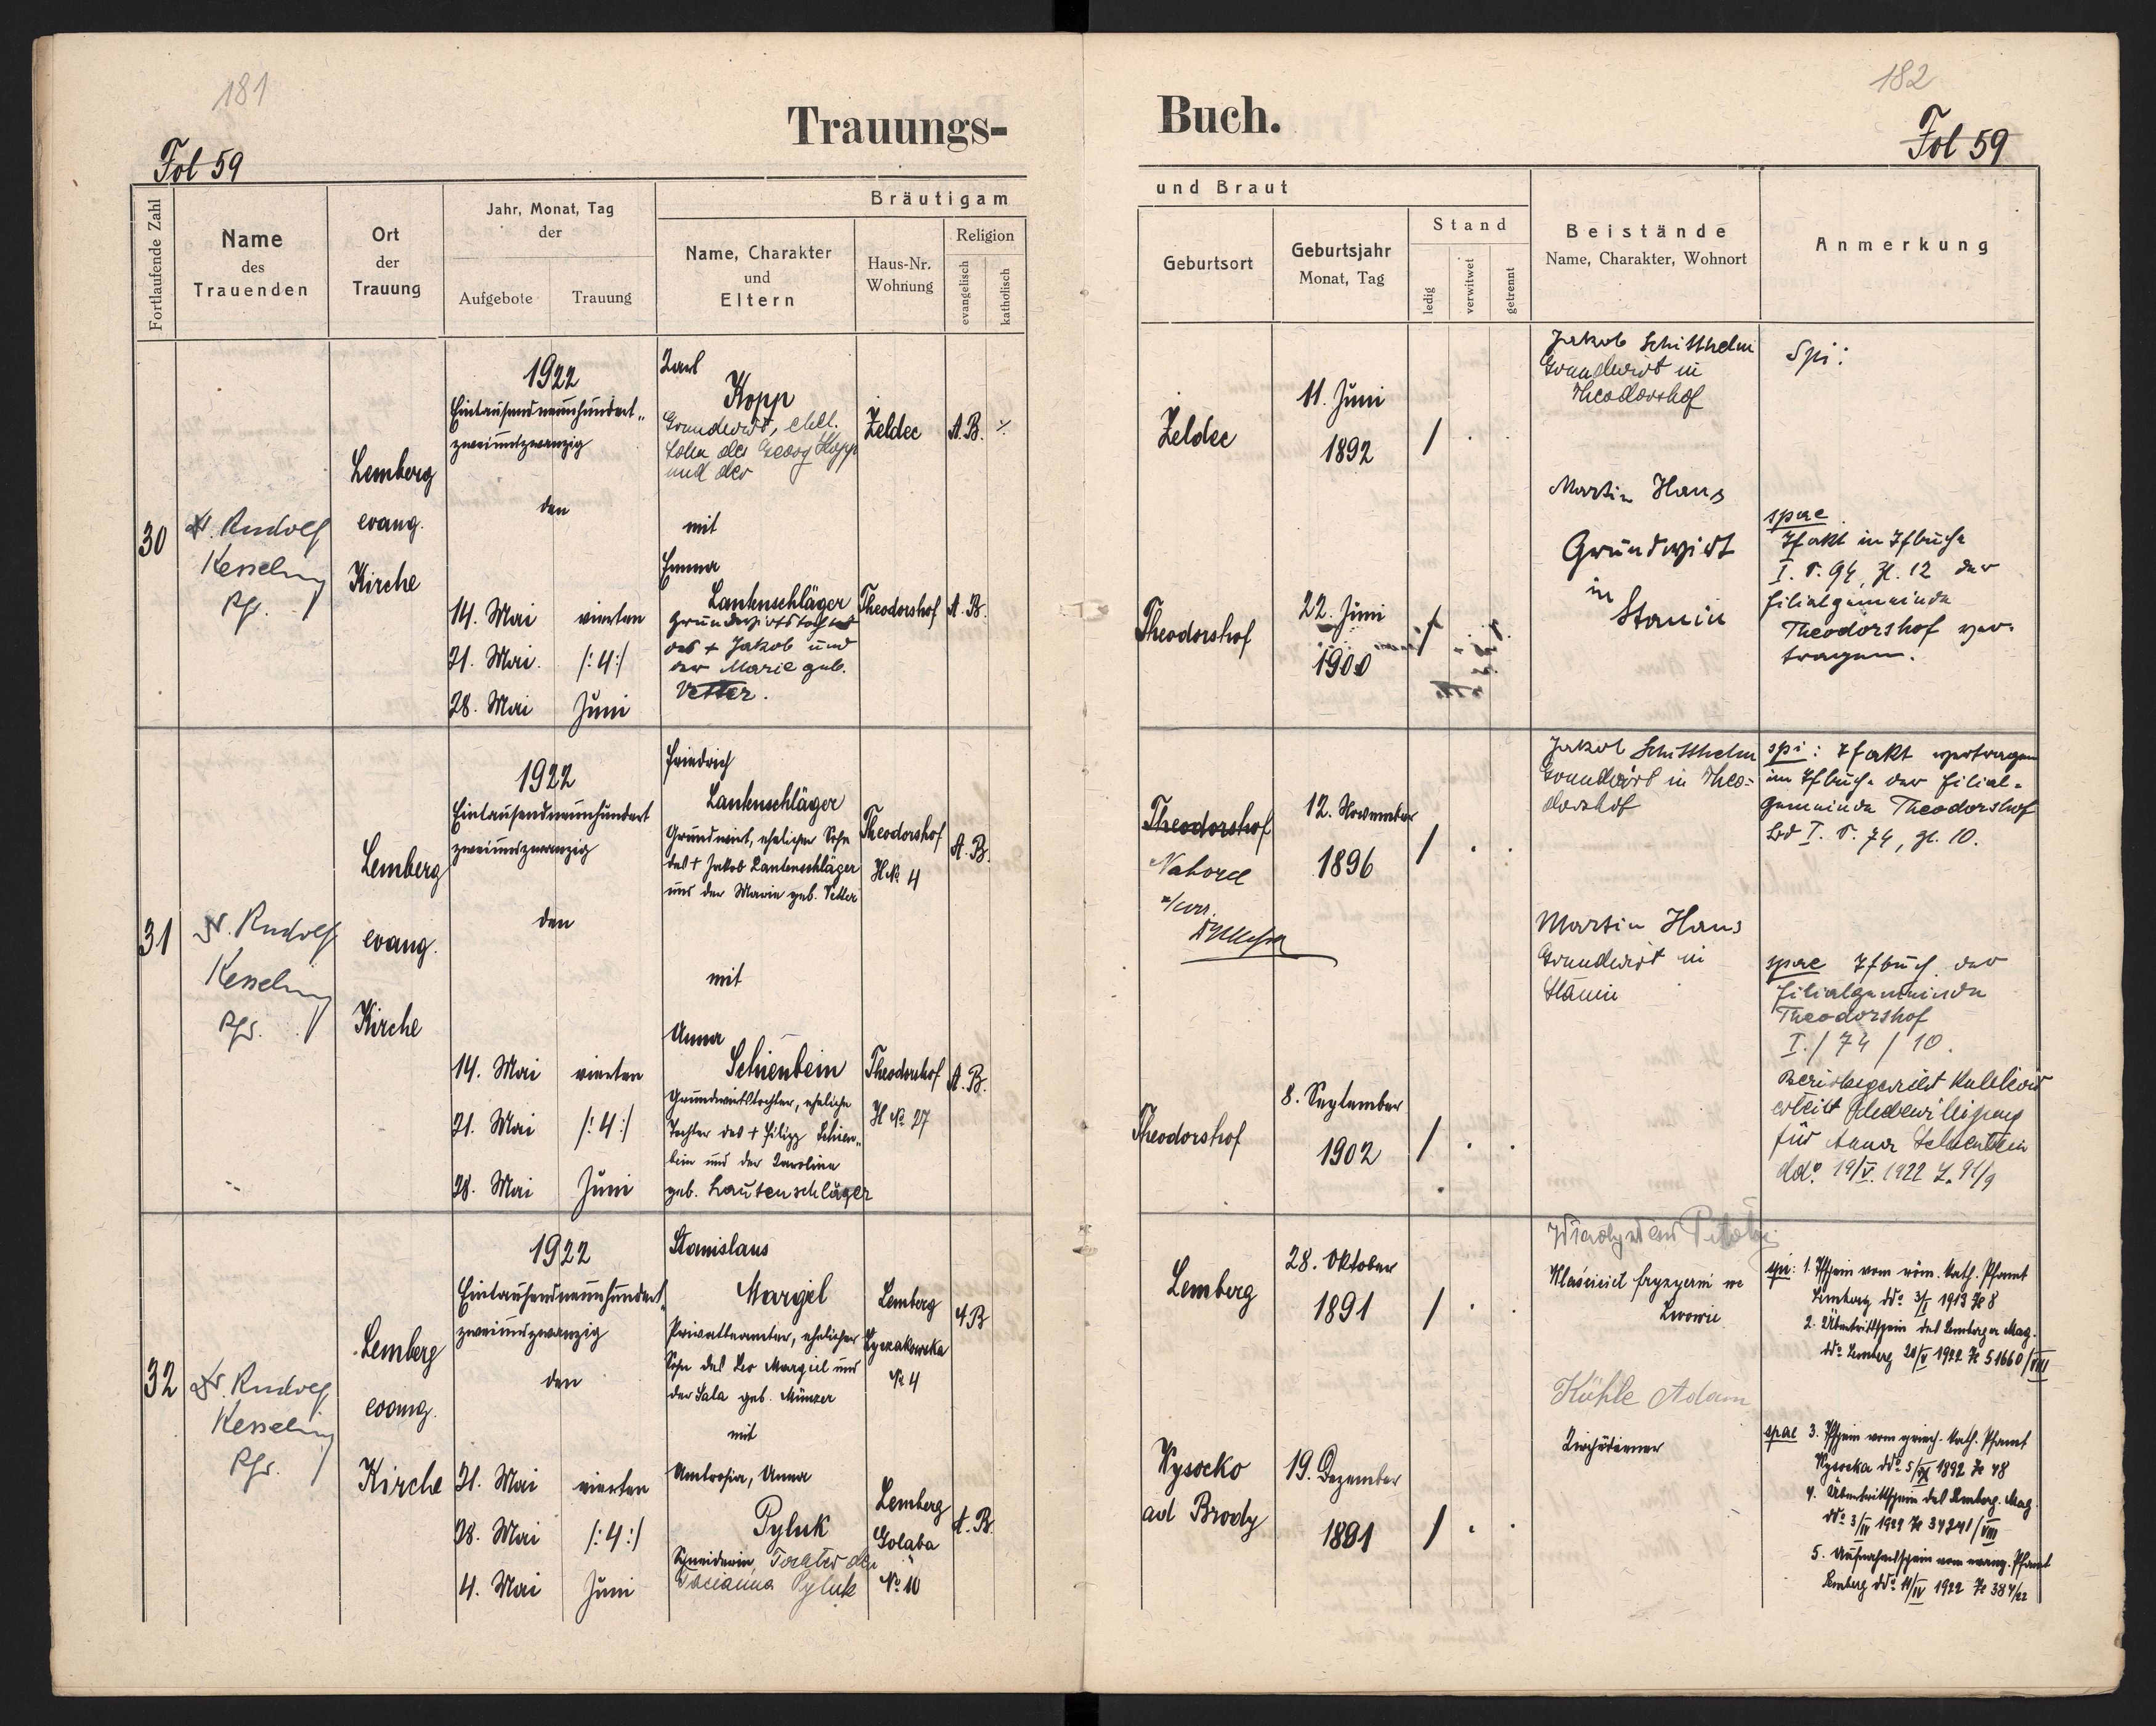 181
Trauungs-
Fol 59
Fortlaufende Zahl
Name
des
Trauenden
Ort
der
Trauung
Jahr, Monat, Tag
der
Aufgebote
Trauung
Bräutigam
Name, Charakter
und
Eltern
Haus-Nr.
Wohnung
Religion
evangelisch
katholisch
30
Dr. Rudolf
Kesselring
Pfr.
Lemberg
evang.
Kirche
1922
Eintausendneunhundert-
zweiundzwanzig
den
14. Mai
21. Mai.
28. Mai
vierten
/:4:/
Juni
Karl
Kopp
Grundwirt, ehel.
Sohn des Georg Kopp
und der
mit
Emma
Lautenschläger
Grundwirtstochter
des + Jakob und
der Marie geb.
Vetter.
Zeldec
A.B.
Theodorshof
A.B.
31
Dr. Rudolf
Kesselring
Pfr.
Lemberg
evang.
Kirche
1922
Eintausendneunhundert
zweiundzwanzig
den
14. Mai
21. Mai
28. Mai
vierten
/:4:/
Juni
Friedrich
Lautenschläger
Grundwirt, ehelicher Sohn
des + Jakob Lautenschläger
und der Marie geb. Vetter
mit
Anna
Schienbein
Grundwirtstochter, eheliche
Tochter des + Filipp Schien-
bein und der Karoline
geb. Lautenschläger
Theodorshof
H№ 4
A.B.
Theodorshof
H № 27
A.B.
32
Dr. Rudolf
Kesselring
Pfr.
Lemberg
evang.
Kirche
1922
Eintausendneunhundert-
zweiundzwanzig
den
21. Mai
28. Mai
4. Mai
vierten
/:4:/
Juni
Stanislaus
Margel
Privatbeamter, ehelicher
Sohn des Leo Margiel und
der Sala geb. Münzer
mit
Ambrosia, Anna
Pyluk
Schneiderin, Tochter der
Tacianna Pyluk
Lemberg
Łyczakowska
№ 4
A B
Lemberg
Golaba
№ 10
A.B.
182
Buch.
Fol 59
und Braut
Geburtsort
Geburtsjahr
Monat, Tag
Stand
ledig
verwitwet
getrennt
Beistände
Name, Charakter, Wohnort
Anmerkung
Zeldec
11. Juni
1892
/
Theodorshof
22. Juni
1900
/
Jakob Schitthelm
Grundwirt in
Theodorshof
Martin Haus
Grundwirt
in
Stanin
Spi:
spae
Ifakt im Ifbuche
I. S. 94, Zl. 12 der
Filialgemeinde
Theodorshof ver-
tragen.
Theodorshof
Nahorce
12. November
1896
/
Theodorshof
8. September
1902
/
Jakob Schitthelm
Grundwirt in Theo-
dorshof
Martin Haus
Grundwirt in
Stanin
spi: Ifakt vertragen
im Ifbuche der Filial-
gemeinde Theodorshof
Bd I. S. 74, Zl. 10.
spae Ifbuch der
Filialgemeinde
Theodorshof
I. / 74 / 10.
Bezirksgericht Kulikow
erteilt Ehebewilligung
für Anna Schienbein
ddo. 19/V. 1922 L. 91/9
Lemberg
28. Oktober
1891
/
Wysocko
ad Brody
19. Dezember
1891
/
Właściciel fryzyerni we
Lwowie
Kühle Adam
Kirchendiener
spi: 1. Ifschein vom röm. kath. Pfarramt
Lemberg ddo 3/I 1913 Zl 8
2. Übertrittschein des Lemberger Mag.
ddo Lemberg 20/V 1922 Zl 51660/VIII
spae 3. Ifschein vom griech. kath. Pfarramt
Wysocka ddo 5/XI 1892 Zl 48
4. Übertrittschein des Lemberg. Mag.
ddo 3/IV 1922 Zl 34241/VIII
5. Aufnahmsschein vom evang. Pfarramt
Lemberg ddo 11/IV 1922 Zl 384/22